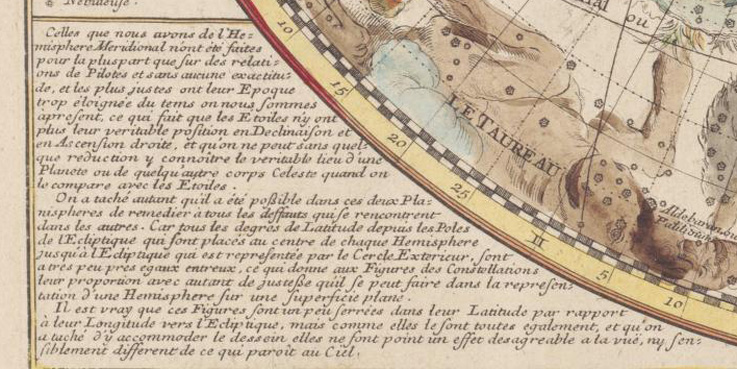 Nebuleuse.
Celles que nous avons de l'He-
misphere Meridional n'ont été faites
pour la pluspart que sur des relati-
ons de Pilotes et sans aucune exactitu-
de, et les plus justes ont leur Epoque
trop éloignée du tems on nous sommes
apresent, ce qui fait que les Etoiles n'y ont
plus leur veritable position en Declinaison et
en Ascension droite, et qu'on ne peut sans quel-
que reduction y connoitre le veritable lieu d'une
Planete ou de quelqu'autre corps Celeste quand on
le compare avec les Etoiles.
On a taché autant qu'il a été possible dans ces deux Pla-
nispheres de remedier à tous les deffauts qui se rencontrent
dans les autres. Car tous les degrés de Latitude depuis les Poles
de l'Ecliptique qui sont placés au centre de chaque Hemisphere
jusqu'à l'Ecliptique qui est representée par le Cercle Exterieur, sont
a tres peu pres egaux entreux, ce qui donne aux Figures des Constellations
leur proportion avec autant de justesse qu'il se peut faire dans la represen-
tation d'une Hemisphere sur une superficie plane.
Il est vray que ces Figures sont un peu serrées dans leur Latitude par rapport
à leur Longitude vers l'Ecliptique, mais comme elles le sont toutes également, et qu'on
a taché d'y accommoder le dessein elles ne font point un effet desagreable a la vuë, ny sen-
siblement different de ce qui paroît au Ciel.
10
15
20
25
II
5
10
LE TAUREAU
nal ou
Aldebaran ou
Palilicium